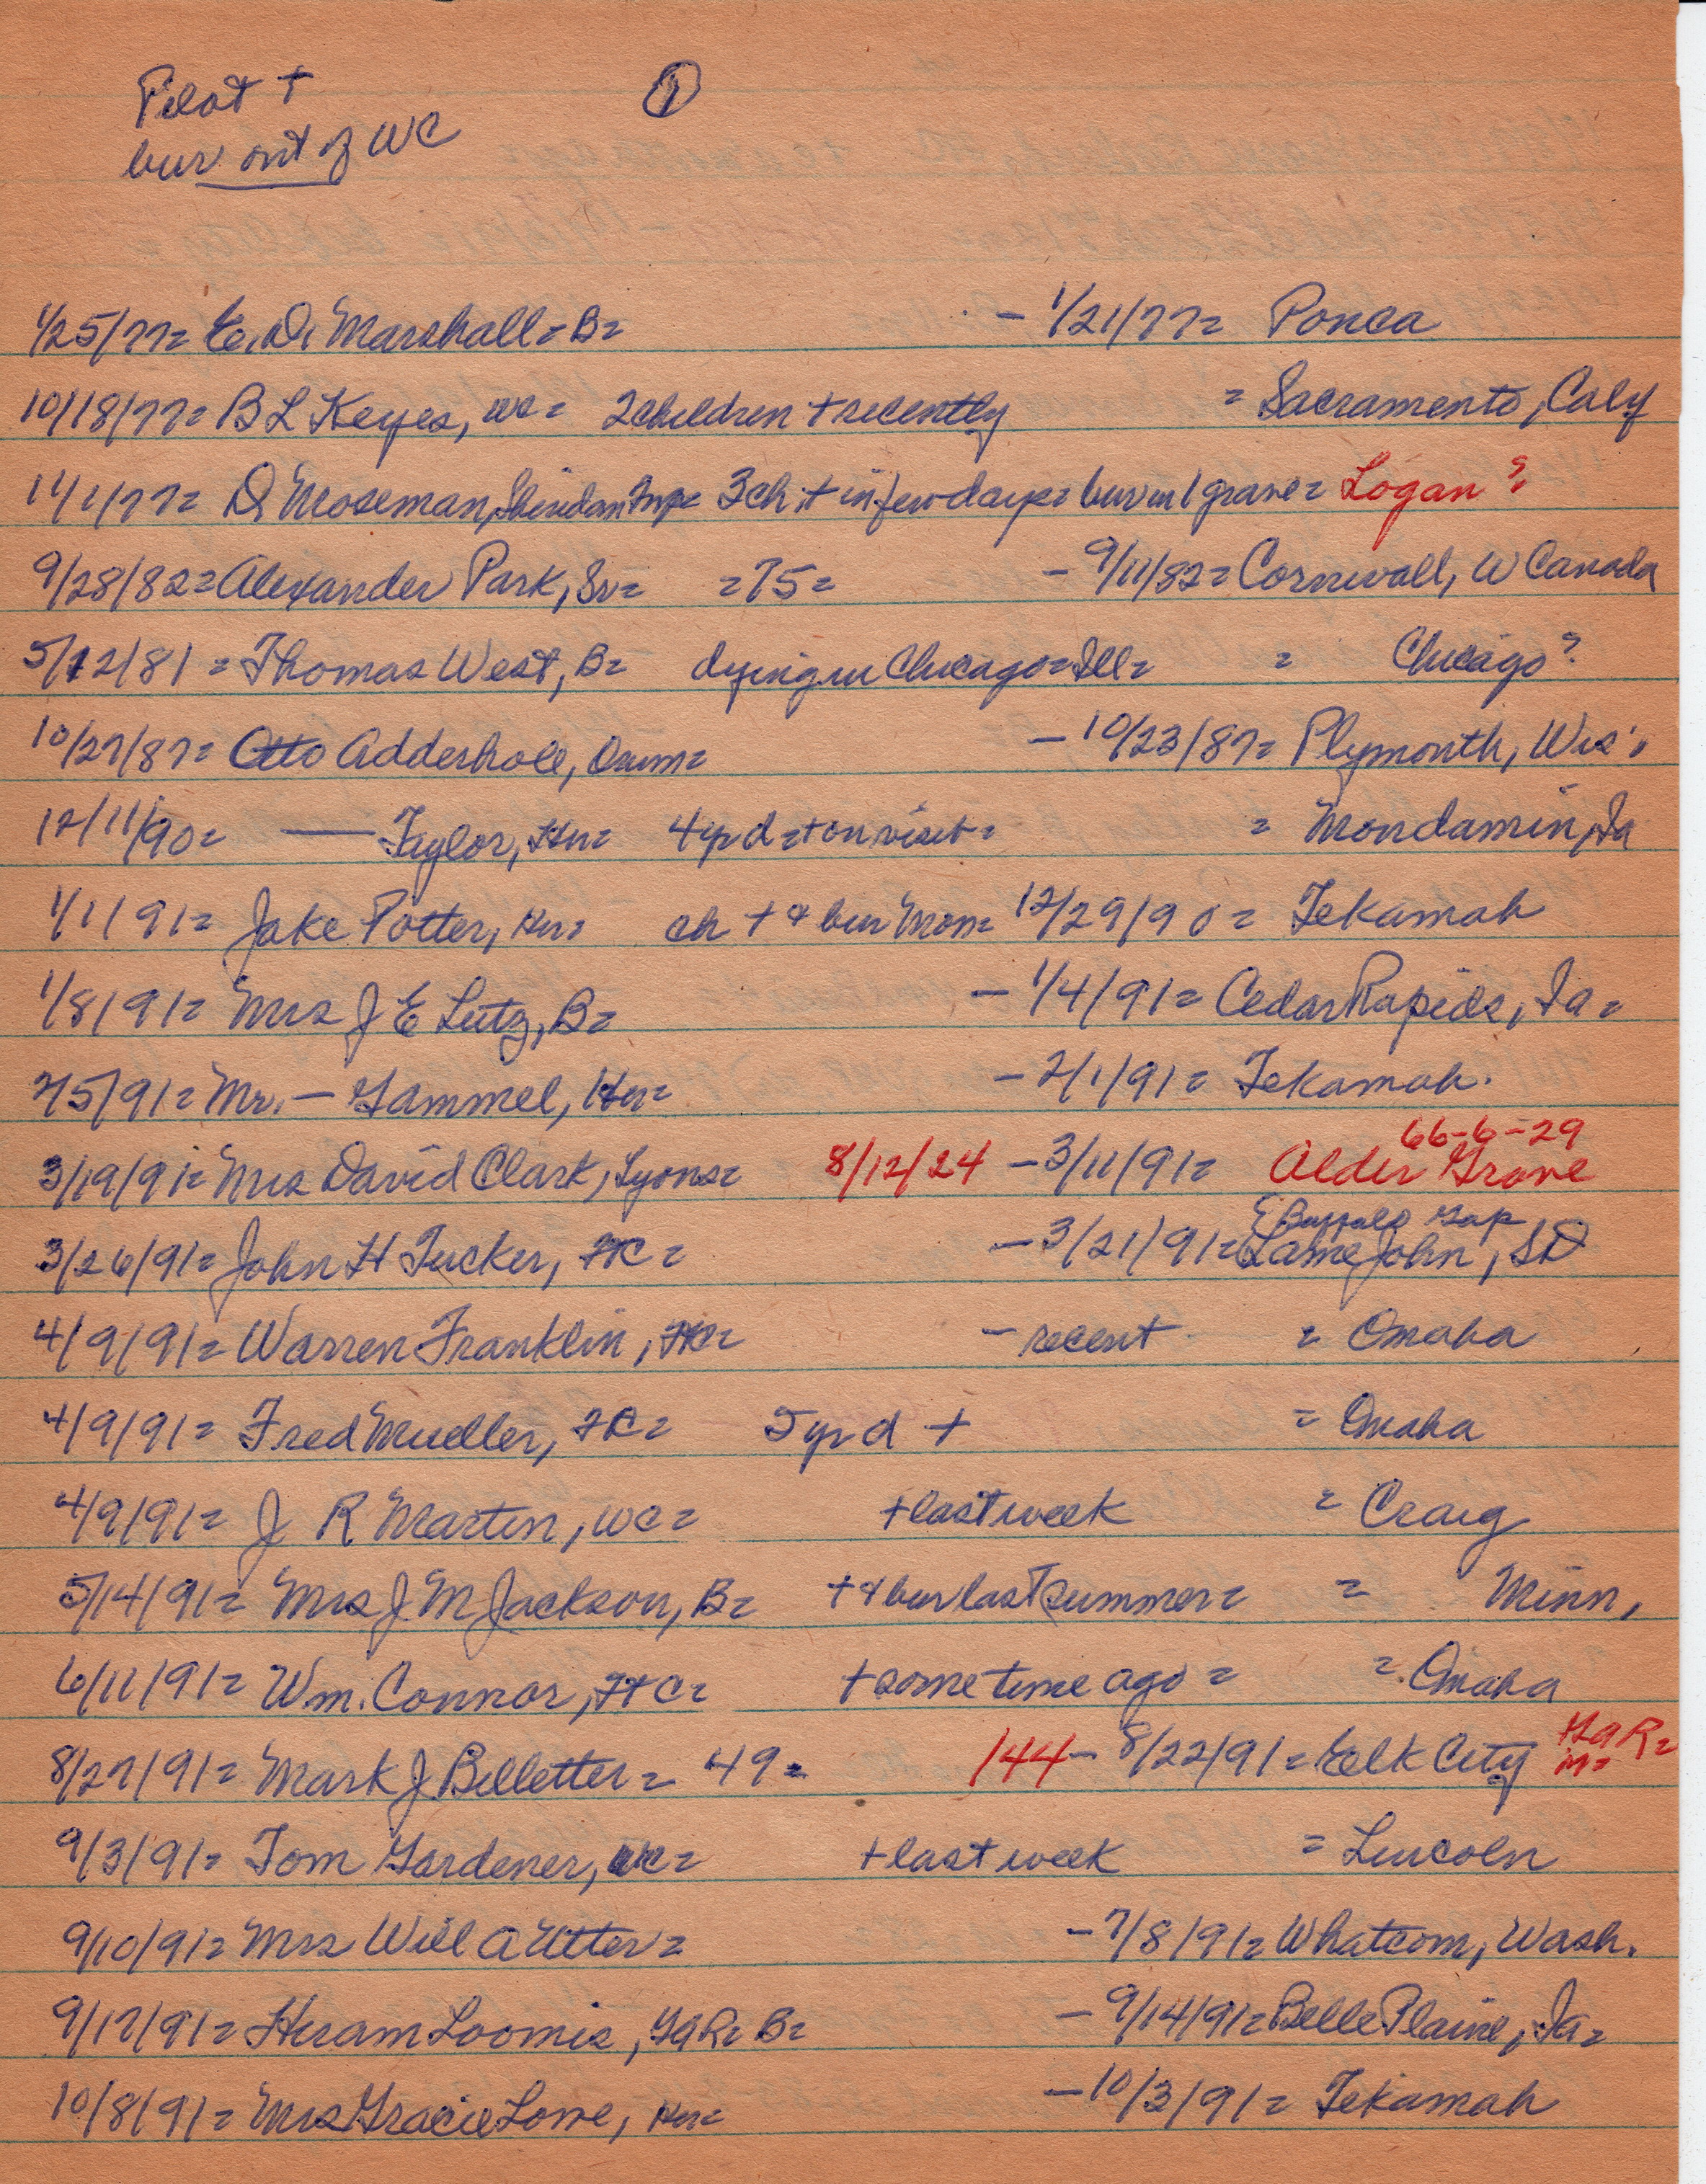 Pilot +
bur out of WC
1
1/25/77= E. D. Marshall= B= - 1/21/77= Ponca
10/18/77= B L Keyes, WC= 2 children + recently = Sacramento, Calif
11/1/77= D. Moseman, Sheridan Twp= 3 ch + in few days= bur in 1 grave= Logan?
9/28/82= Alexander Park, Sr= =75= - 9/11/82= Cornwall, W Canada
5/12/81= Thomas West, B= dying in Chicago= Ill= = Chicago?
10/27/87= Otto Adderhole, Oum= - 10/23/87= Plymouth, Wis.
12/11/90= — Taylor, Hn= 4 yr d = + on visit= = Mondamin, Ia
1/1/91= Jake Potter, Hn= ch + & bur Mon= 12/29/90= Tekamah
1/8/91= Mrs J E Lutz, B= - 1/4/91= Cedar Rapids, Ia=
2/5/91= Mr. — Gammel, Hn= - 2/1/91= Tekamah.
66-6-29
3/19/91= Mrs David Clark, Lyons= 8/12/24 - 3/11/91= Alder Grove
E Buffalo Gap
3/26/91= John H Tucker, HC= - 3/21/91= Lame John, SD
4/9/91= Warren Franklin, HC= - recent = Omaha
4/9/91= Fred Mueller, HC= 5 yr d + = Omaha
4/9/91= J R Martin, WC= + last week = Craig
5/14/91= Mrs J. M Jackson, B= + & bur last summer= = Minn,
6/11/91= Wm. Connor, HC= + some time ago= = Omaha
8/27/91= Mark J Belletter= 49= 144 - 8/22/91= Elk City GAR= M=
9/3/91= Tom Gardener, WC= + last week = Lincoln
9/10/91= Mrs Will A Utter= - 7/8/91= Whatcom, Wash.
9/17/91= Hiram Loomis, GAR= B= - 9/14/91= Belle Plaine, Ia=
10/8/91= Mrs Gracie Lowe, Hn= - 10/3/91= Tekamah